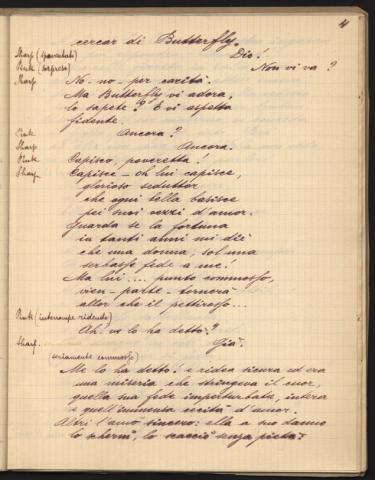 4
cercar di Butterfly.
Sharp (spaventato) Dio!
Pink (sorpreso) Non vi va?
Sharp No- no- per carità.
Ma Butterfly vi adora,
lo sapete? E vi aspetta
fidente.
Pink Ancora?
Sharp Ancora.
Pink Capisco, poveretta!
Sharp Capisce- oh lui capisce,
glorioso seduttor
che ogni bella basisce
pei suoi vezzi d'amor.
Guarda se la fortuna
in tanti anni mi diè
che una donna, sol una
serbasse fede a me!
Ma lui.... punto commosso,
vien- parte- tornerà
allor che il pettirosso...
Pink (interrompe ridendo)
Ah! ve lo ha detto?
Sharp. Già.
(seriamente commosso)
Me lo ha detto! e ridea sicura ed era
una miseria che stringeva il cuor,
quella sua fede imperturbata, intera
e quell'imminente cecità d'amor.
Altri l'amò sincero: ella a suo danno
lo schernì, lo scacciò senza pietà: